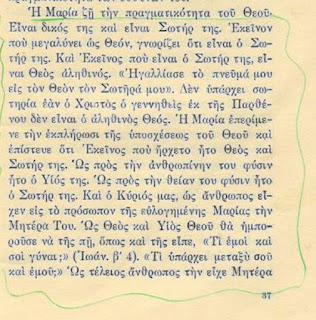 Ἡ Μαρία ζῇ τὴν πραγματικότητα τοῦ Θεοῦ.
Εἶναι δικός της καὶ εἶναι Σωτήρ της. Ἐκεῖνον
ποὺ μεγαλύνει ὡς Θεόν, γνωρίζει ὅτι εἶναι ὁ Σω-
τήρ της. Καὶ Ἐκεῖνος ποὺ εἶναι ὁ Σωτήρ της, εἶ-
ναι Θεὸς ἀληθινός. «Ἠγαλλίασε τὸ πνεῦμά μου
εἰς τὸν Θεὸν τὸν Σωτῆρά μου». Δὲν ὑπάρχει σω-
τηρία ἐὰν ὁ Χριστὸς ὁ γεννηθεὶς ἐκ τῆς Παρθέ-
νου δὲν εἶναι ὁ ἀληθινὸς Θεός. Ἡ Μαρία ἐπερίμε-
νε τὴν ἐκπλήρωσι τῆς ὑποσχέσεως τοῦ Θεοῦ καὶ
ἐπίστευε ὅτι Ἐκεῖνος ποὺ ἤρχετο ἦτο Θεὸς καὶ
Σωτήρ της. Ὡς πρὸς τὴν ἀνθρωπίνην του φύσιν
ἦτο ὁ Υἱός της. Ὡς πρὸς τὴν θείαν του φύσιν ἦτο
ὁ Σωτήρ της. Καὶ ὁ Κύριός μας, ὡς ἄνθρωπος εἶ-
χεν εἰς τὸ πρόσωπον τῆς εὐλογημένης Μαρίας τὴν
Μητέρα Του. Ὡς Θεὸς καὶ Υἱὸς Θεοῦ θὰ ἠμπο-
ροῦσε νὰ τῆς πῇ, ὅπως καὶ τῆς εἶπε, «Τί ἐμοὶ καὶ
σοὶ γύναι;» (Ἰωάν. β´ 4). «Τί ὑπάρχει μεταξὺ σοῦ
καὶ ἐμοῦ;» Ὡς τέλειος ἄνθρωπος τὴν εἶχε Μητέρα
37